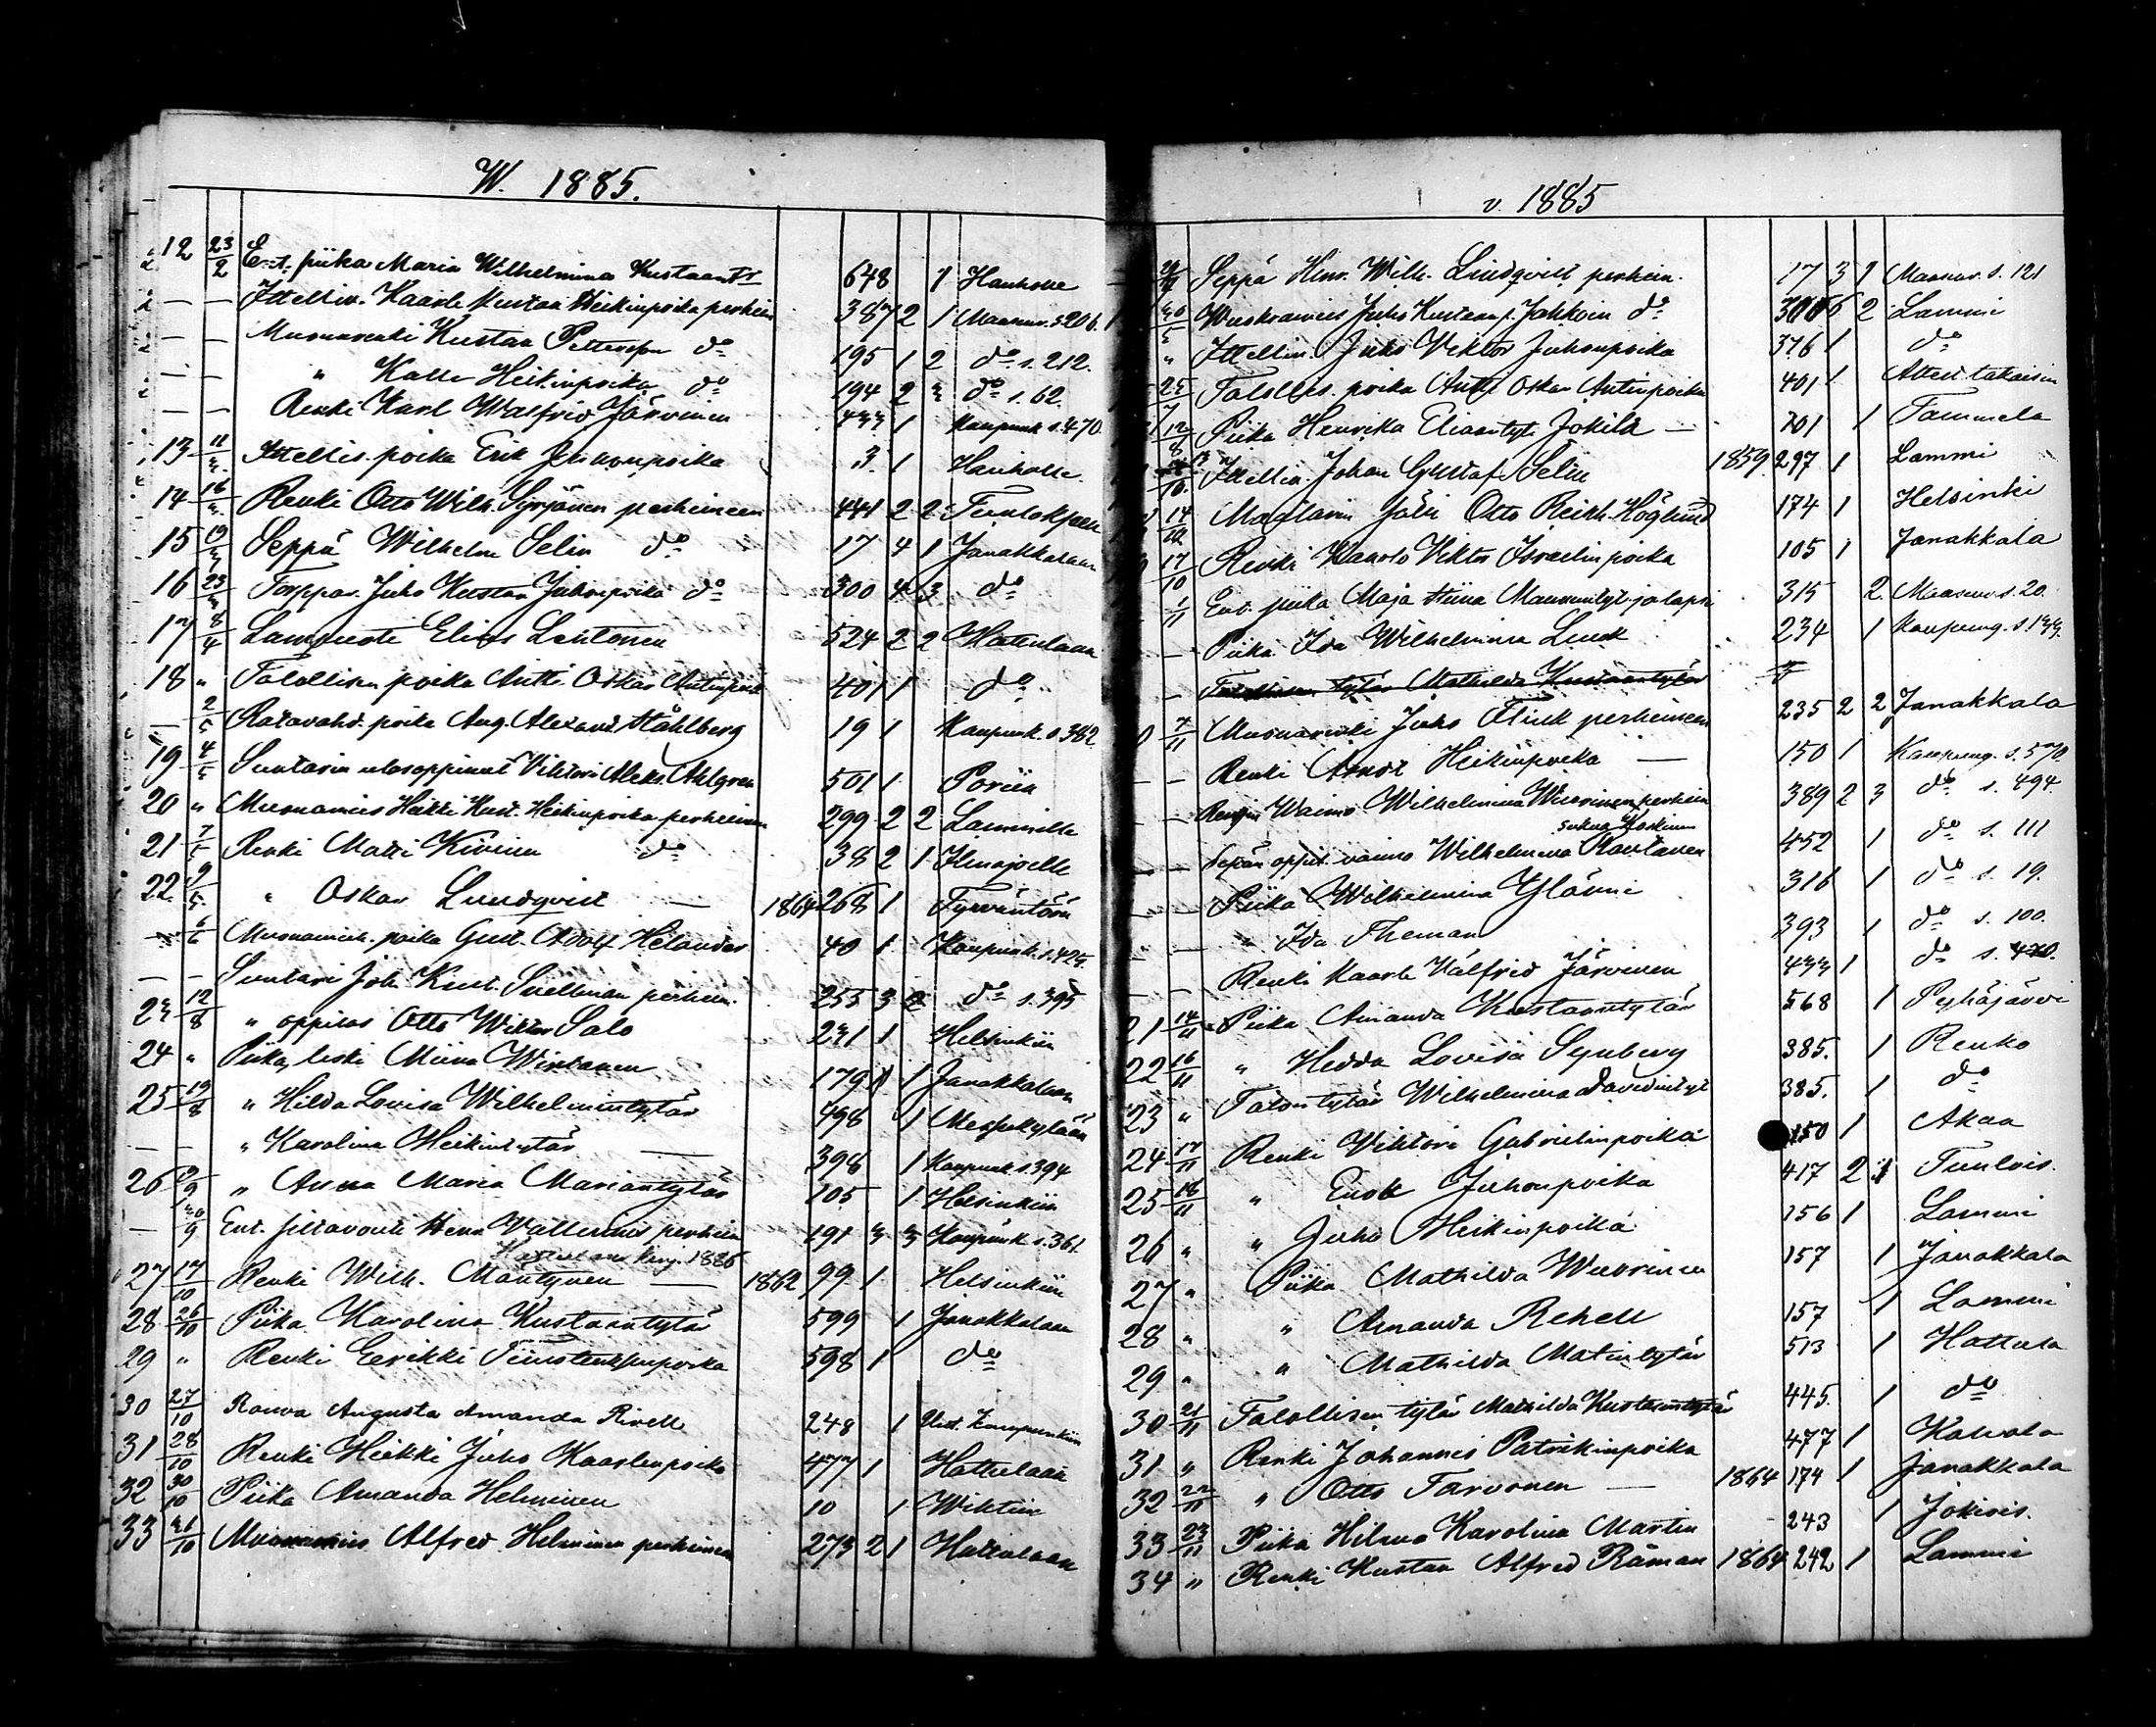 W. 1885.
12 23/2 Ent. piika Maria Wilhelmina Kustaantr 648 1 Hauholle
— — Itsellis. Kaarle Kustaa Heikinpoika perhein 387 2 1 Maaseur. s. 206.
— — Muonarenki Kustaa Petterson do 195 1 2 do s. 212.
— — " Kalle Heikinpoika do 194 2 3 do s. 62.
— — Renki Karl Walfrid Järvinen 433 1 Kaupunk s. 470.
13 11/3 Itsellis. poika Erik Juhonpoika 3 1 Hauholle.
14 16/3 Renki Otto Wilh. Syrjänen perheineen 441 2 2 Tuulokselle
15 19/3 Seppä Wilhelm Selin do 17 4 1 Janakkalaan
16 23/3 Torppar. Juho Kustaa Juhonpoika do 300 4 3 do
17 8/4 Lampuoti Elias Lehtonen 524 2 2 Hattulaan
18 " Talollisen poika Antti Oskar Antinpoika 401 1 do
— 2/5 Ratavahd. poika Aug. Alexand. Ståhlberg 19 1 Kaupunk. s. 382
19 4/5 Suutarin ulosoppinut Viktori Aleks. Ahlgren 501 1 Poriin
20 " Muonamies Heikki Kust. Heikinpoika perheineen 299 2 2 Lammille
21 7/5 Renki Matti Kivinen do 38 2 1 Ilmajoelle
22 9/5 " Oskar Lundqvist — 1864 268 1 Tyrväntöön
— 6/6 Muonamieh. poika Gust. Adolf Helander 40 1 Kaupunk. s. 425.
— — Suutari Joh. Kust. Snellman perhein. 255 3 2 do s. 395
23 12/8 " oppilas Otto Wiktor Salo 231 1 Helsinkiin
24 " Piika, leski Miina Wirtanen 179 1 Janakkalaan
25 19/8 " Hilda Lovisa Wilhelmintytär 498 1 Messukylään
— — " Karolina Heikintytär — 398 1 Kaupunk. s. 394
26 9/9 " Anna Maria Mariantytär 105 1 Helsinkiin
— 30/9 Ent. siltavouti Wallenius perhein 191 3 3 Kaupunk s. 361.
kirj. 1886
27 17/10 Renki Wilh. Mäntynen — 1862 99 1 Helsinkiin
28 26/10 Piika Karolina Kustaantytär 599 1 Janakkalaan
29 " Renki Eerikki 598 1 do
30 27/10 Rouva Augusta Amanda Rivell 248 1 Kaupunkiin
31 28/10 Renki Heikki Juho Kaarlenpoika 477 1 Hattulaan
32 30/10 Piika Amanda Helminen 10 1 Wihtiin
33 31/10 Muonamies Alfred Helminen perheineen 273 2 1 Hattulaan
v. 1885
Seppä Henr. Wilh. Lindqvist perhein. 17 3 1 Maaseur. s. 121
Juho Kustaanp. Jahkoin do 300 6 2 Lammi
" Itsellin. Juho Viktor Juhonpoika 376 1 do
Talollis. poika Antti Oskar Antinpoika 401 1 takaisin
12/8 Piika Henrika Eliaantyt. Jokila — 201 1 Tammela
Itsellin. Johan Gustaf Selin 1859 297 1 Lammi
14/10 Maalarin Otto Reinh. Höglund 174 1 Helsinki
17/10 Renki Kaarlo Viktor Israelinpoika 105 1 Janakkala
1/11 Ent. piika Maja Stiina Manuntyt. ja lapsi 315 2 Maaseur s. 20.
— Piika Ida Wilhelmina Lind 234 1 Kaupung. s. 133.
— Talollisen tytär Mathilda Kustaantytär
7/11 Muonarenki Juho Flink perheineen 235 2 2 Janakkala
— — Renki Arvot Heikinpoika — 150 1 Kaupung. s. 570.
— — Rengin Waimo Wilhelmina Wuorinen perhein 389 2 3 do s. 494
sukua Koskinen
— — Sepän oppil. vaimo Wilhelmina Rautanen 452 1 do s. 111
— — Piika Wilhelmina Yläinni 316 1 do s. 19.
— — " Ida Theman 393 1 do s. 100.
— — Renki Kaarle Valfrid Järvinen 433 1 do s. 470.
21 14/11 Piika Amanda Kustaantytär 568 1 Pyhäjärvi
22 16/11 " Hedda Lovisa Synberg 385. 1 Renko
23 " Talontytär Wilhelmina Davidintyt 385. 1 do
24 17/11 Renki Wiktori Gabrielinpoika 150 1 Akaa
25 18/11 " Enok Juhonpoika 417 2 1 Tuulois.
26 " " Juho Heikinpoika 156 1 Lammi
27 " Piika Mathilda Wuorinen 157 1 Janakkala
28 " " Amanda Rehell 157 1 Lammi
29 " " Mathilda Matintytär 513 1 Hattula
30 21/11 Talollisen tytär Mathilda Kustaantytär 445. 1 do
31 " Renki Johannes Patrikinpoika 477 1 Kalvola
32 22/11 " Otto Tarvonen — 1864 174 1 Janakkala
33 23/11 Piika Hilma Karolina Martin 243 1 Jokiois.
34 " Renki Kustaa Alfred Råman 1864 242 1 Lammi